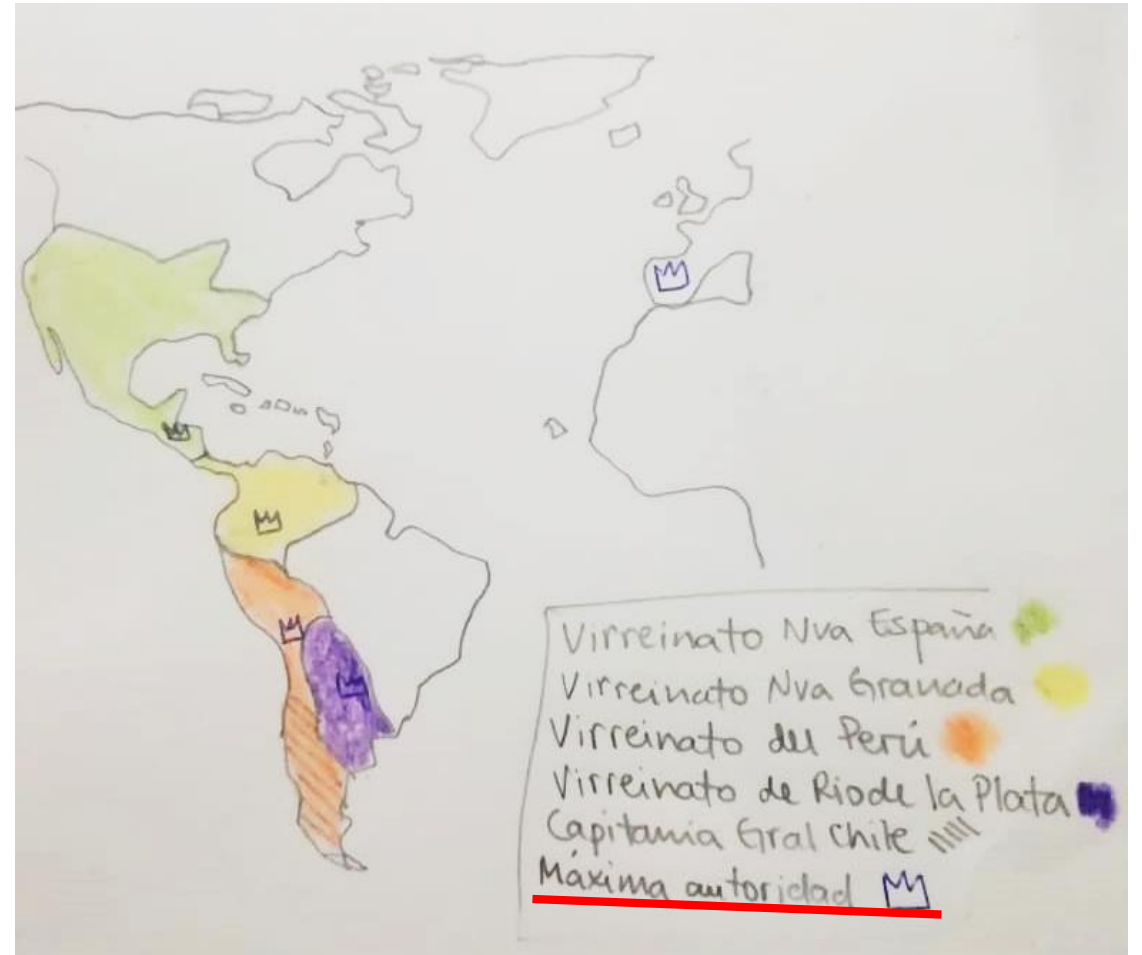 Virreinato Nva España
Virreinato Nva Granada
Virreinato del Perú
Virreinato de Riode la Plata
Capitania Gral Chile
Máxima autoridad